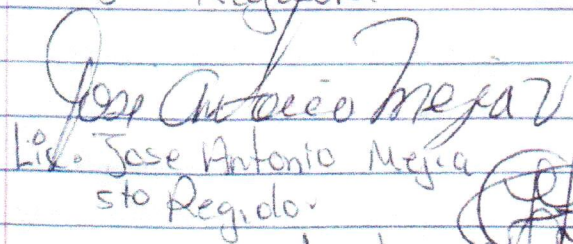 Jose Antonio Mejia V
Lic. Jose Antonio Mejia
5to Regidor